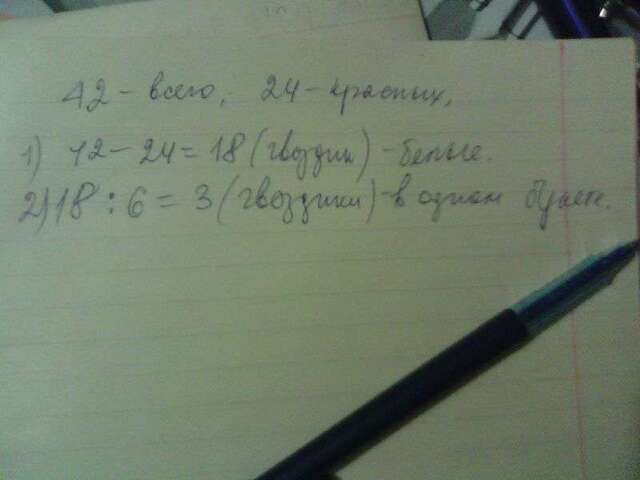 42 - всего, 24 - красных,
1) 42 - 24 = 18 (гвоздик) - белые.
2) 18 : 6 = 3 (гвоздики) - в одном букете.